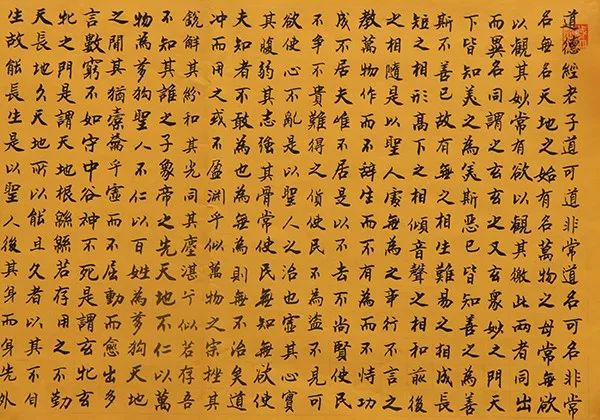 道德經老子道可道非常道名可名非常
名無名天地之始有名萬物之母常無欲
以觀其妙常有欲以觀其徼此兩者同出
而異名同謂之玄玄之又玄眾妙之門天
下皆知美之為美斯惡已皆知善之為善
斯不善已故有無之相生難易之相成長
短之相形高下之相傾音聲之相和前後
之相隨是以聖人處無為之事行不言之
教萬物作而不辭生而不有為而不恃功
成不居夫唯不居是以不去不尚賢使民
不爭不貴難得之貨使民不為盜不見可
欲使心不亂是以聖人之治也虛其心實
其腹弱其志強其骨常使民無知無欲使
夫知者不敢為也為無為則無不治矣道
沖而用之或不盈淵乎似萬物之宗挫其
銳解其紛和其光同其塵湛兮似若存吾
不知其誰之子象帝之先天地不仁以萬
物為芻狗聖人不仁以百姓為芻狗天地
之間其猶橐籥乎虛而不屈動而愈出多
言數窮不如守中谷神不死是謂玄牝玄
牝之門是謂天地根綿綿若存用之不勤
天長地久天地所以能且久者以其不自
生故能長生是以聖人後其身而身先外